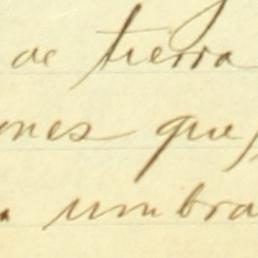 de tierra
ones que
umbra